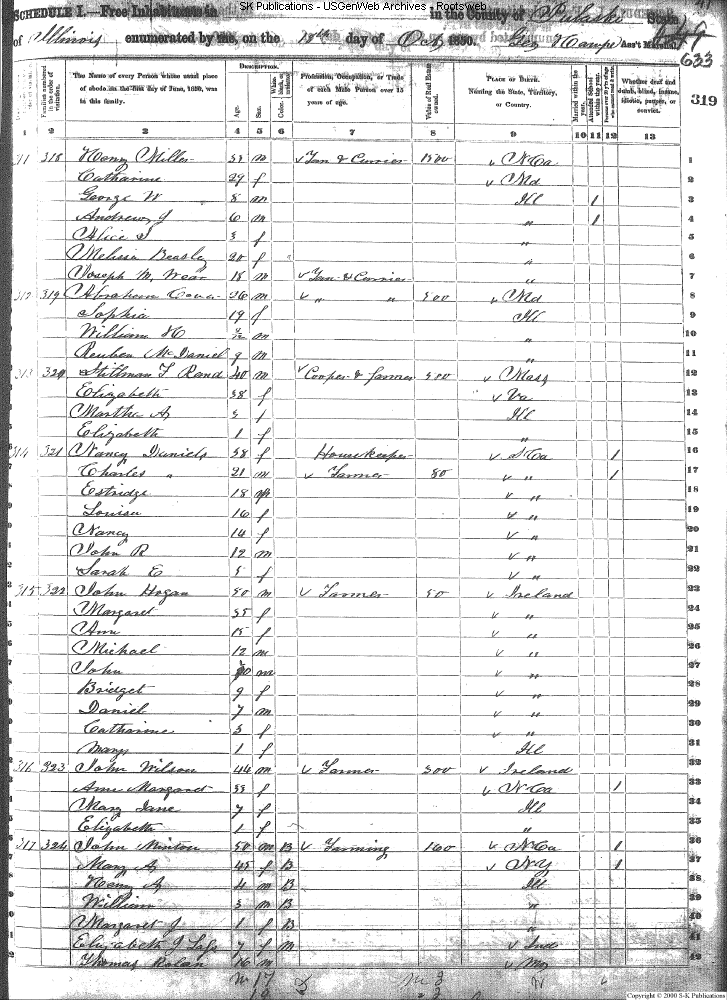 SK Publications - USGenWeb Archives - Rootsweb
SCHEDULE I.—Free Inhabitants in in the County of Pulaski State
of Illinois enumerated by me, on the 18th day of Oct 1850. Geo Ass't Marshal.
633
319
DESCRIPTION.
The Name of every Person whose usual place of abode on the first day of June, 1850, was in this family.
Age. Sex. Color
Profession, Occupation, or Trade of each Male Person over 15 years of age.
Value of Real Estate owned.
PLACE OF BIRTH. Naming the State, Territory, or Country.
Married within the year.
Attended School within the year.
Whether deaf and dumb, blind, insane, idiotic, pauper, or convict.
1 2 2 4 5 6 7 8 9 10 11 12 13
311 318 Henry Miller m Tan & Currier 1500 N Ca 1
Catharine 29 f Md 2
George W 8 m Ill 1 3
Andrew J 6 m " 1 4
Alice 3 f " 5
Melissa Beasley 20 f " 6
Joseph M, Wear 18 m Tan & Currier " 7
312 319 Abraham Cover 26 m " " 500 Md 8
Sophia 19 f Ill 9
William H m " 10
Reuben McDaniel 9 m " 11
313 320 Stillman T Rand 40 m Cooper & farmer 500 Mass 12
Elizabeth 38 f Va 13
Martha A 3 f Ill 14
Elizabeth 1 f " 15
314 321 Nancy Daniels 58 f Housekeeper S Ca 1 16
Charles " 21 m Farmer 80 " 1 17
Estridge 18 m " 18
Louisa 16 f " 19
Nancy 14 f " 20
John R 12 m " 21
Sarah E f " 22
315 322 John Hogan 50 m Farmer 50 Ireland 23
Margaret 35 f " 24
Ann 15 f " 25
Michael 12 m " 26
John 10 m " 27
Bridget 9 f " 28
Daniel 7 m " 29
Catharine 3 f " 30
Mary 1 f Ill 31
316 323 John Wilson 44 m Farmer 300 Ireland 32
Ann Margaret f N Ca 1 33
Mary Jane 7 f Ill 34
Elizabeth 1 f " 35
317 324 John Minton 50 m B Farming 160 N Ca 1 36
Mary A 45 f B N Y 1 37
Henry A 4 m B Ill 38
William 3 m B " 39
Margaret J 1 f B " 40
Elizabeth J 7 f M Ind 41
Thomas 16 m Mo 42
Copyright © 2000 S-K Publications